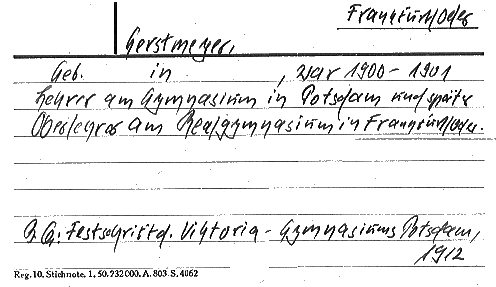 Frankfurt/Oder
Gerstmeyer,
Geb. in , war 1900-1901
Lehrer am Gymnasium in Potsdam und später
Oberlehrer am Realgymnasium in Frankfurt/Oder.
Festschrift d. Viktoria-Gymnasiums Potsdam,
1912
Reg. 10. Stichnote. 1, 50. 932000. A. 803 S. 4062